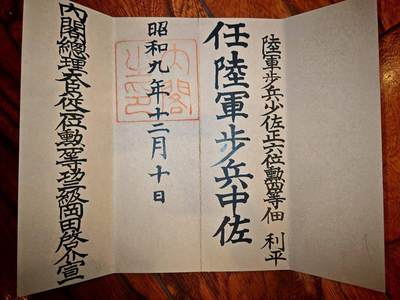 陸軍步兵少佐正六位勲四等佃 利平
任陸軍步兵中佐
昭和九年十二月十日
内閣之印
内閣總理大臣從二位勲一等功三級岡田啓介宣